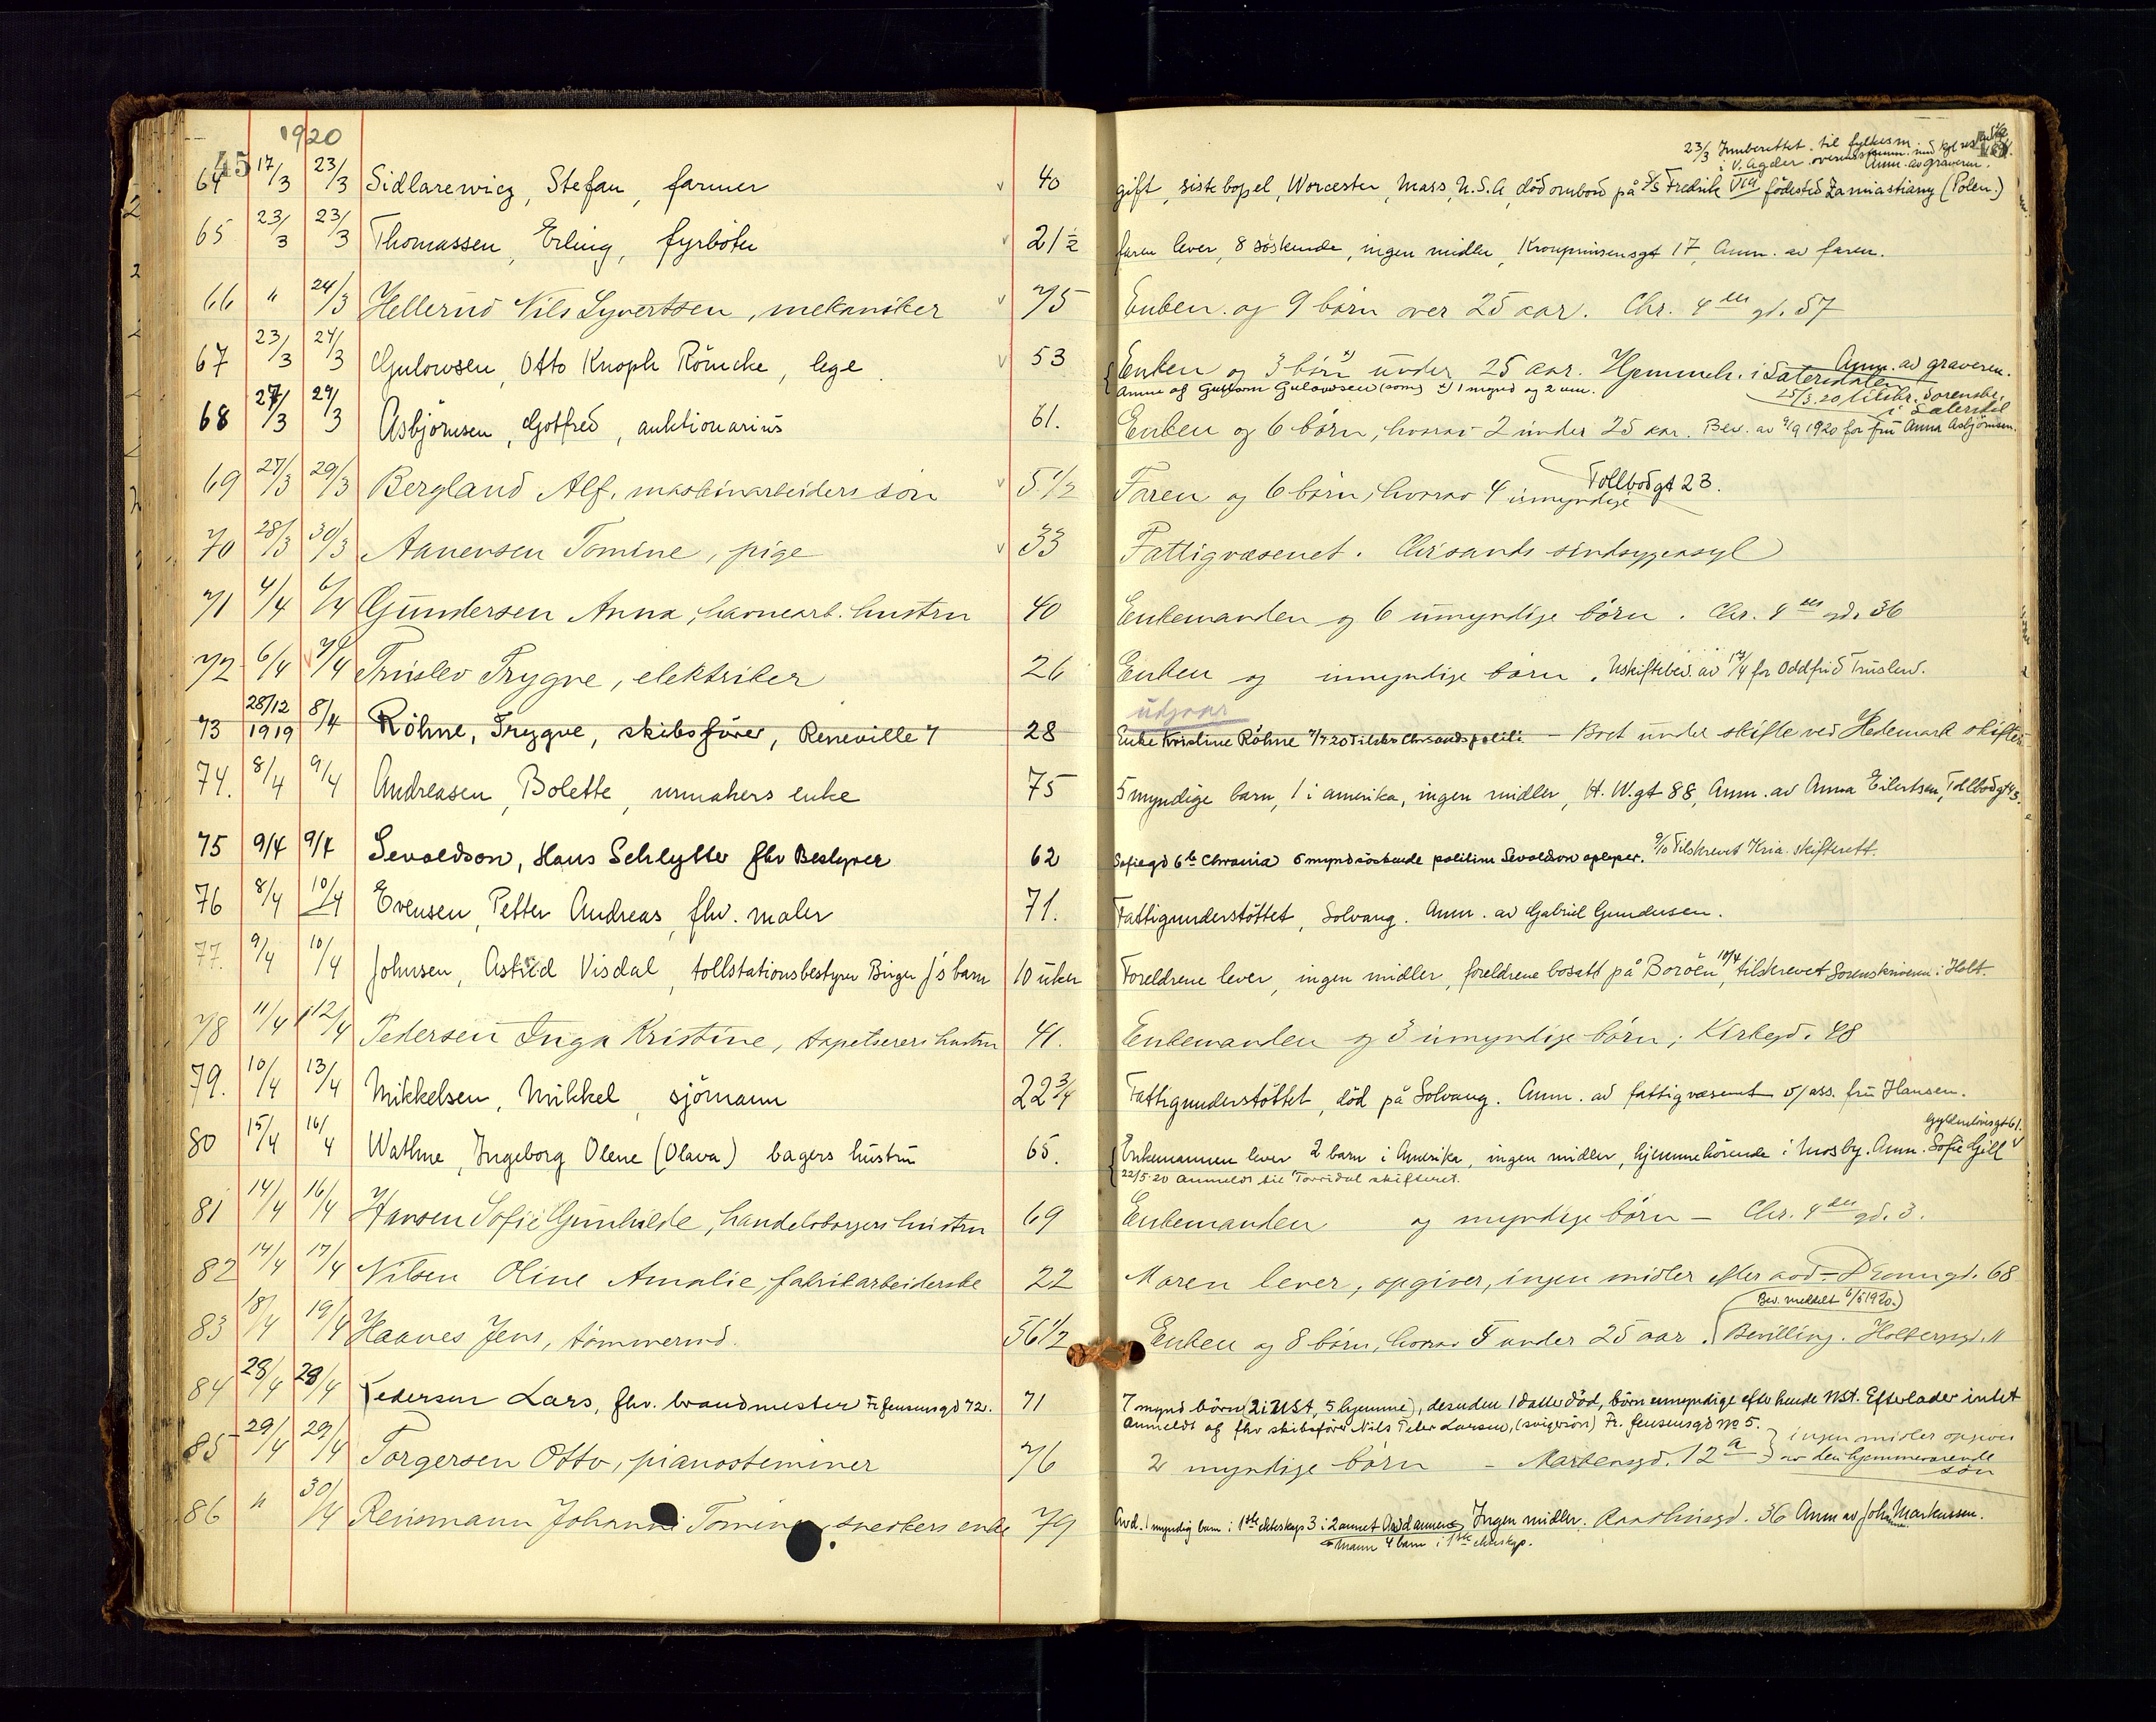 1920
45
23/3 Innberettet til fylkesm.
i V. Agder
Anm. av graveren.
64 17/3 23/3 Sidlarewicz, Stefan, farmer 40 gift, siste bopel, Worcester, Mass, U.S.A, död ombord på S/S Fredrik VIII, födested Zamiastiany (Polen.)
65 23/3 23/3 Thomassen, Erling, fyrböter 21 1/2 faren lever, 8 söskende, ingen midler, Kronprinsensgt 17, Anm. av faren.
66 " 24/3 Hellerud Nils Syvertsen, mekaniker 75 Enken og 9 börn over 25 aar. Chr. 4des gd. 57
67 23/3 24/3 Gulowsen, Otto Knoph Römcke, lege 53 Enken og 3 börn x) under 25 aar. Hjemmeh. i Sætersdalen Anm. av graveren.
Anm af Guttorm Gulowsen (sönn) x) 1 mynd og 2 um.
25/3.20 tilskr. sorenskr. i Sætersdal
68 27/3 29/3 Asbjörnsen, Gotfred, auktionarius 61. Enken og 6 börn, hvorav 2 under 25 aar. Bev. av 9/9 1920 for fru Anna Asbjörnsen.
69 27/3 29/3 Bergland Alf, maskinarbeiders sön 5 1/2 Faren og 6 börn, hvorav 4 umyndige Tollbodgt 23.
70 28/3 30/3 Aanensen Tomine, pige 33 Fattigvæsenet. Chrsands sindsygeasyl
71 4/4 6/4 Gundersen Anna, havnearb. hustru 40 Enkemanden og 6 umyndige börn. Chr. 4des gd. 36
72 6/4 7/4 Truslev Trygve, elektriker 26 Enken og umyndige barn. Uskiftebev. av 17/4 for Oddfrid Truslew.
utgaar
73 28/12 1919 8/4 Röhne, Trygve, skibsförer, Reneville 7 28 Enke Kristine Röhne 7/7 20 Tilskr Chrsands politi - Boet under skifte ved Hedemark skifter.
74. 8/4 9/4 Andreasen, Bolette, urmakers enke 75 5 myndige barn, 1 i amerika, ingen midler, H. W. gt 88, Anm. av Anna Eilertsen, Tollbodgt 43.
75 9/4 9/4 Sevaldson, Hans Schlytter fhv Bestyrer 62 Sofiegd 6b Chrania 5 mynd söskende politim Sevaldson opgiver. 9/10 Tilskrevet Kria. skifterett.
76 8/4 10/4 Evensen, Petter Andreas, fhv. maler 71. Fattigunderstöttet, Solvang. Anm. av Gabriel Gundersen.
77. 9/4 10/4 Johnsen, Astrid Visdal, tollstationsbestyrer Birger J's barn 10 uker Foreldrene lever, ingen midler, foreldrene bosatt på Boröen, 10/4 tilskrevet Sorenskriveren i Holt.
78 11/4 12/4 Pedersen Inga Kristine, tapetserers hustru 41. Enkemanden og 3 umyndige börn; Kirkegd. 48
79. 10/4 13/4 Mikkelsen, Mikkel, sjömann 22 3/4 Fattigunderstöttet, död på Solvang. Anm. av fattigvæsenet v/ass. frü Hansen.
80 15/4 16/4 Wathne, Ingeborg Olene (Olava) bagers hustru 65. Enkemannen lever 2 barn i Amerika, ingen midler, hjemmehörende i Mosby. Anm. Sofie Gjell Gyldenlövesgt 61.
22/5 20 anmeldt til Torridal skifteret.
81 14/4 16/4 Hansen Sofie Gunhilde, handelsborgers hustru 69 Enkemanden og myndige börn - Chr. 4des gd. 3.
82 14/4 17/4 Nilsen Oline Amalie, fabrikarbeiderske 22 Moren lever, opgiver, ingen midler efter avd - Dronngd. 68
83 18/4 19/4 Haanes Jens, tömmermd. 56 1/2 Enken og 8 börn, hvorav 5 under 25 aar. Bevilling. Holbergsgd. 11
Bev. meddelt 6/5 1920.)
84 28/4 28/4 Pedersen Lars, fhv. brandmester Fr Jensensgd 72. 71 7 mynd börn (2 i USA, 5 hjemme), desuden 1 datter död, börn umyndige efter hende USA. Efterlader intet
Anmeldt af fhv skibsförer Nils Peter Larsen, (svigersön) Fr. Jensensgd No 5.
85 29/4 29/4 Torgersen Otto, pianostemmer 76 2 myndige börn - Markensgd. 12a } ingen midler opgives av den hjemmeværende sön
86 " 30/4 Reinmann Johanne Tomine, snekkers enke 79 Avd. 1 myndig barn i 1ste ekteskap 3 i 2 annet Avd annen Ingen midler. Raadhusgd. 36 Anm av Johanne Markussen.
mann 4 barn i 1ste ekteskap.